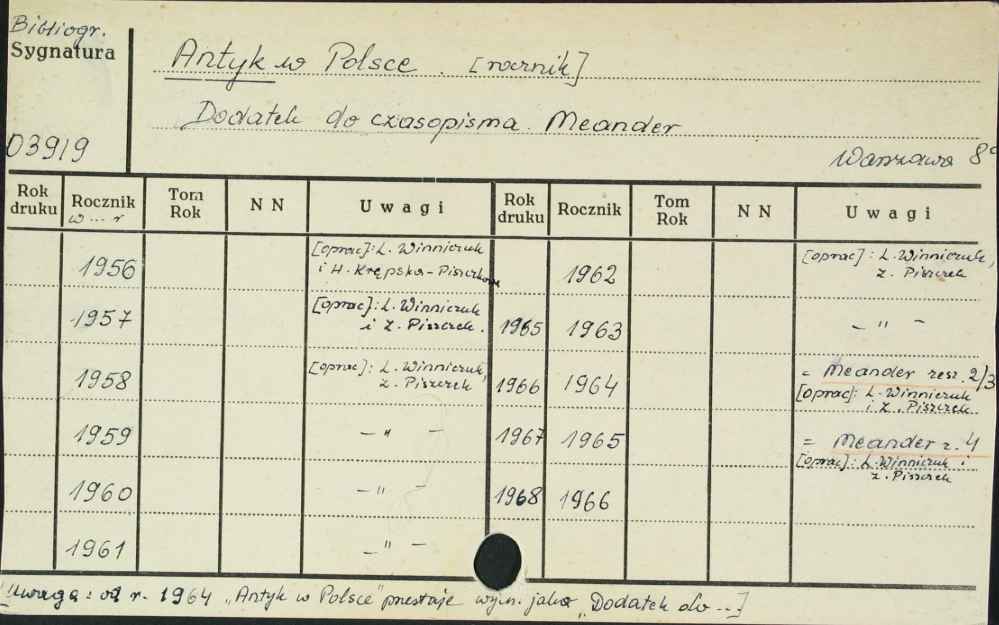 Bibliogr.
Sygnatura
Antyk w Polsce. [rocznik]
Dodatek do czasopisma Meander
03919
Warszawa 8°
Rok druku Rocznik w ... r Tom Rok N N Uwagi Rok druku Rocznik Tom Rok N N Uwagi
1956 [oprac]: L. Winniczuk
i H. Krępska-Piszczkowa
1962 [oprac]: L. Winniczuk,
Z. Piszczek
1957 [oprac]: L. Winniczuk
i Z. Piszczek.
1965 1963 — " —
1958 [oprac]: L. Winniczuk,
Z. Piszczek
1966 1964 = Meander zesz. 2/3
[oprac]: L. Winniczuk
i Z. Piszczek.
1959 — " —
1967 1965 = Meander z. 4
[oprac]: L. Winniczuk i
Z. Piszczek
1960 — " —
1968 1966
1961 — " —
[Uwaga: od r. 1964 "Antyk w Polsce" przestaje wych. jako "Dodatek do ...]